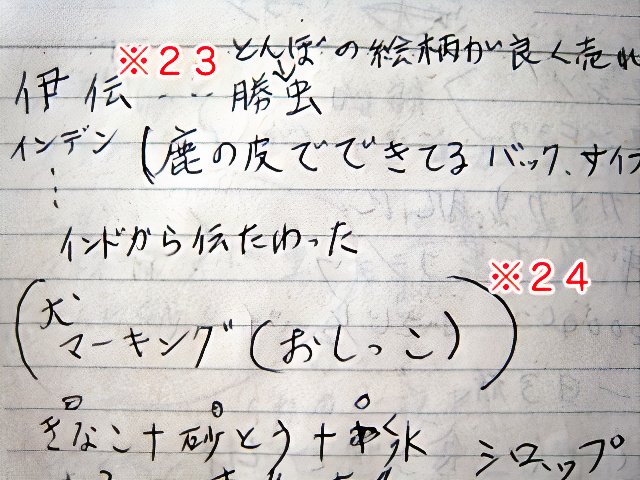 ※23 とんぼの絵柄が良く売れ
伊伝 ‥‥ 勝虫
インデン (鹿の皮でできてる バック、サイフ
インドから伝たわった
※24
(犬 マーキング(おしっこ))
きなこ+砂とう+氷 シロップ